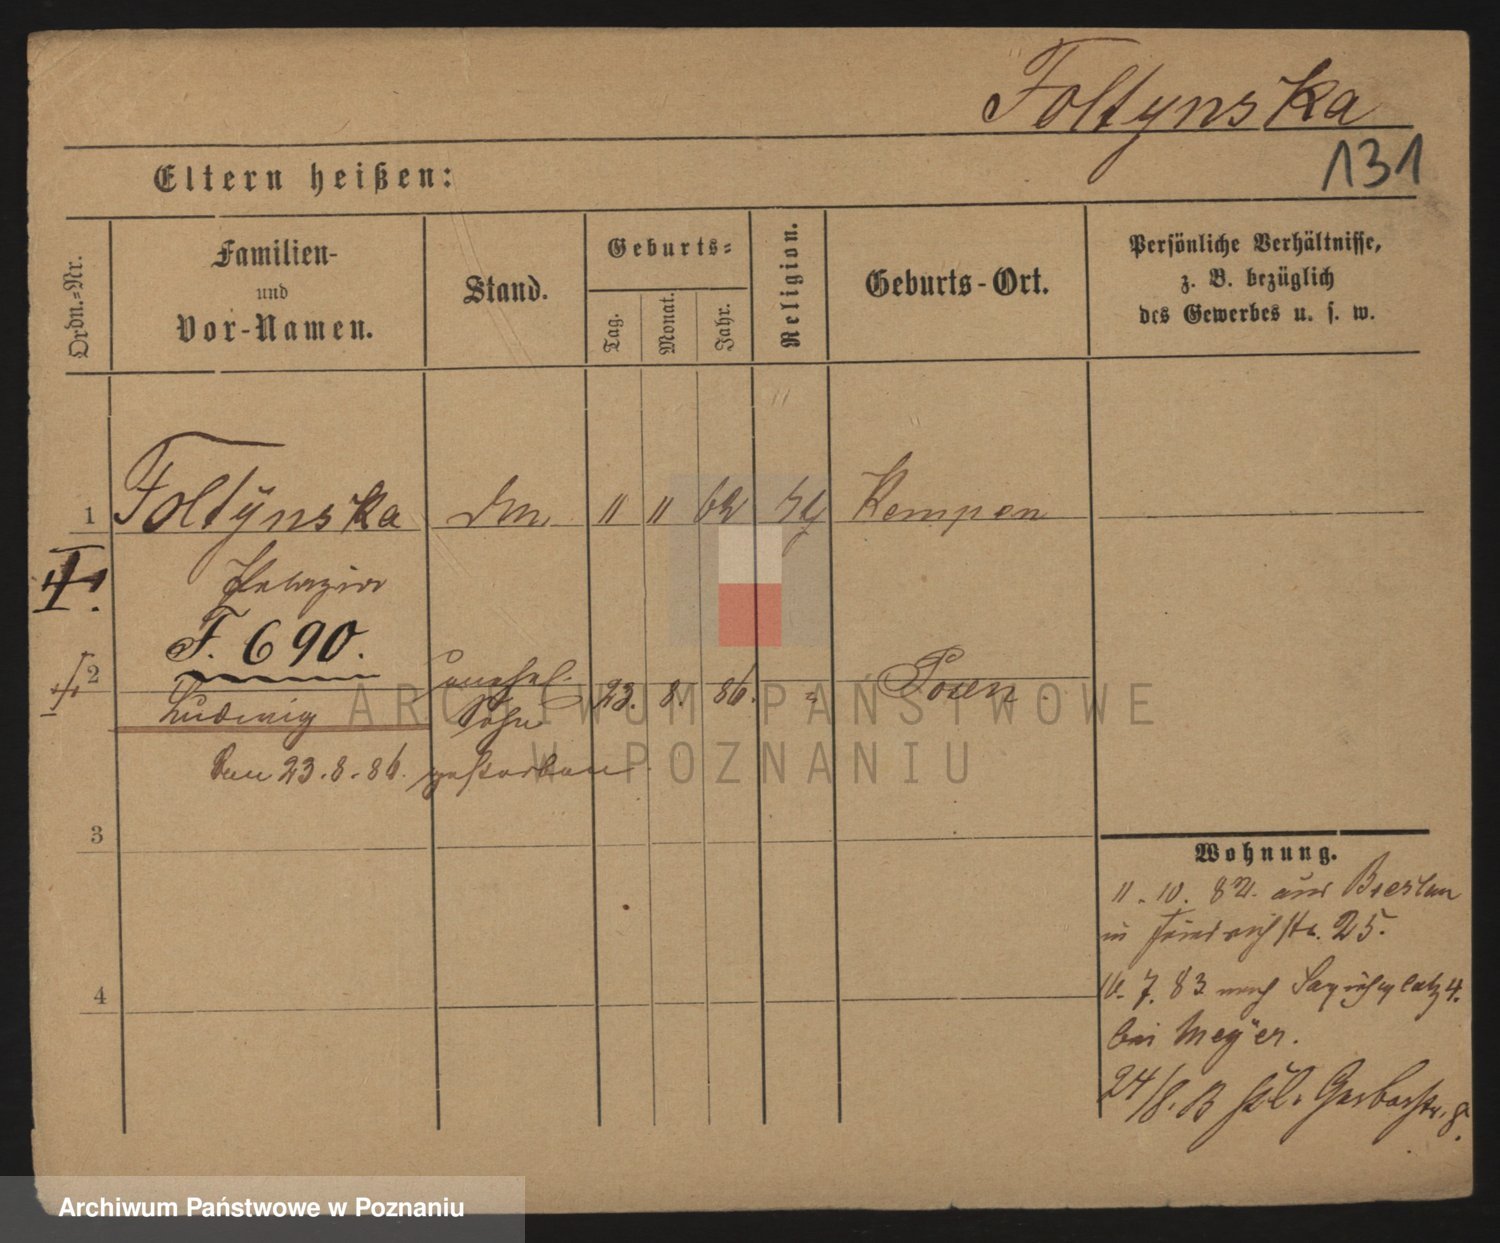 Foltynska
131
Eltern heißen:
Ordn.=Nr.
Familien-
und
Vor-Namen.
Stand.
Geburts=
Tag.
Monat.
Jahr.
Religion.
Geburts-Ort.
Persönliche Verhältnisse,
z. B. bezüglich
des Gewerbes u. s. w.
1 Foltÿnska " " 62 Kempen
Pelagia
F. 690.
2 unehel. 23. 8. 86. " Posen
Ludwig Sohn
Den 23.8.86. gestorben.
ARCHIWUM PAŃSTWOWE
W POZNANIU
3
4
Wohnung.
11. 10. 82. aus Breslau
in Friedrichstr. 25.
16. 7. 83 nach Sapiehaplatz 4.
bei Meÿer.
24/8. Gerberstr. 8.
Archiwum Państwowe w Poznaniu